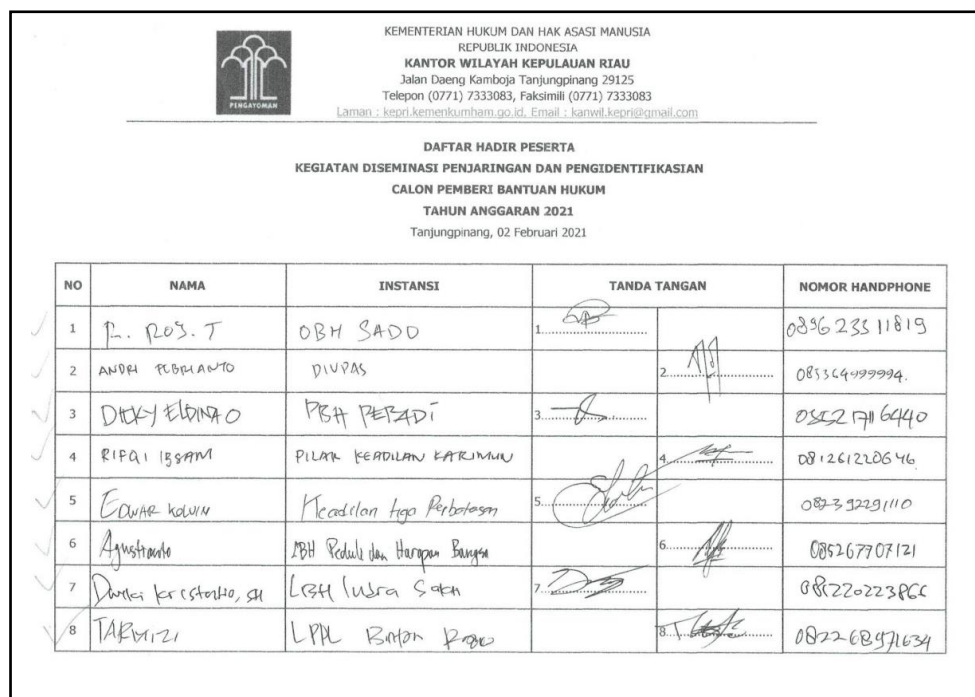 PENGAYOMAN
KEMENTERIAN HUKUM DAN HAK ASASI MANUSIA
REPUBLIK INDONESIA
KANTOR WILAYAH KEPULAUAN RIAU
Jalan Daeng Kamboja Tanjungpinang 29125
Telepon (0771) 7333083, Faksimili (0771) 7333083
Laman : kepri.kemenkumham.go.id, Email : kanwil.kepri@gmail.com
DAFTAR HADIR PESERTA
KEGIATAN DISEMINASI PENJARINGAN DAN PENGIDENTIFIKASIAN
CALON PEMBERI BANTUAN HUKUM
TAHUN ANGGARAN 2021
Tanjungpinang, 02 Februari 2021
NO NAMA INSTANSI TANDA TANGAN NOMOR HANDPHONE
1 OBH SADO 1. 089623311819
2 ANDRI FEBRIANTO DIVPAS 2. 085364999994.
3 PBH PERADI 3.
4 RIFQI PILAR KEADILAN KARIMUN 4. 081261220646
5 EDWAR KOLVIN Keadilan tiga Perbatasan 5. 082392291110
6 Agustianto LBH Peduli dan Harapan Bangsa 6. 085267707121
7 SH LBH 7.
8 TARMIZI LPPL Bintan 8. 082268971634